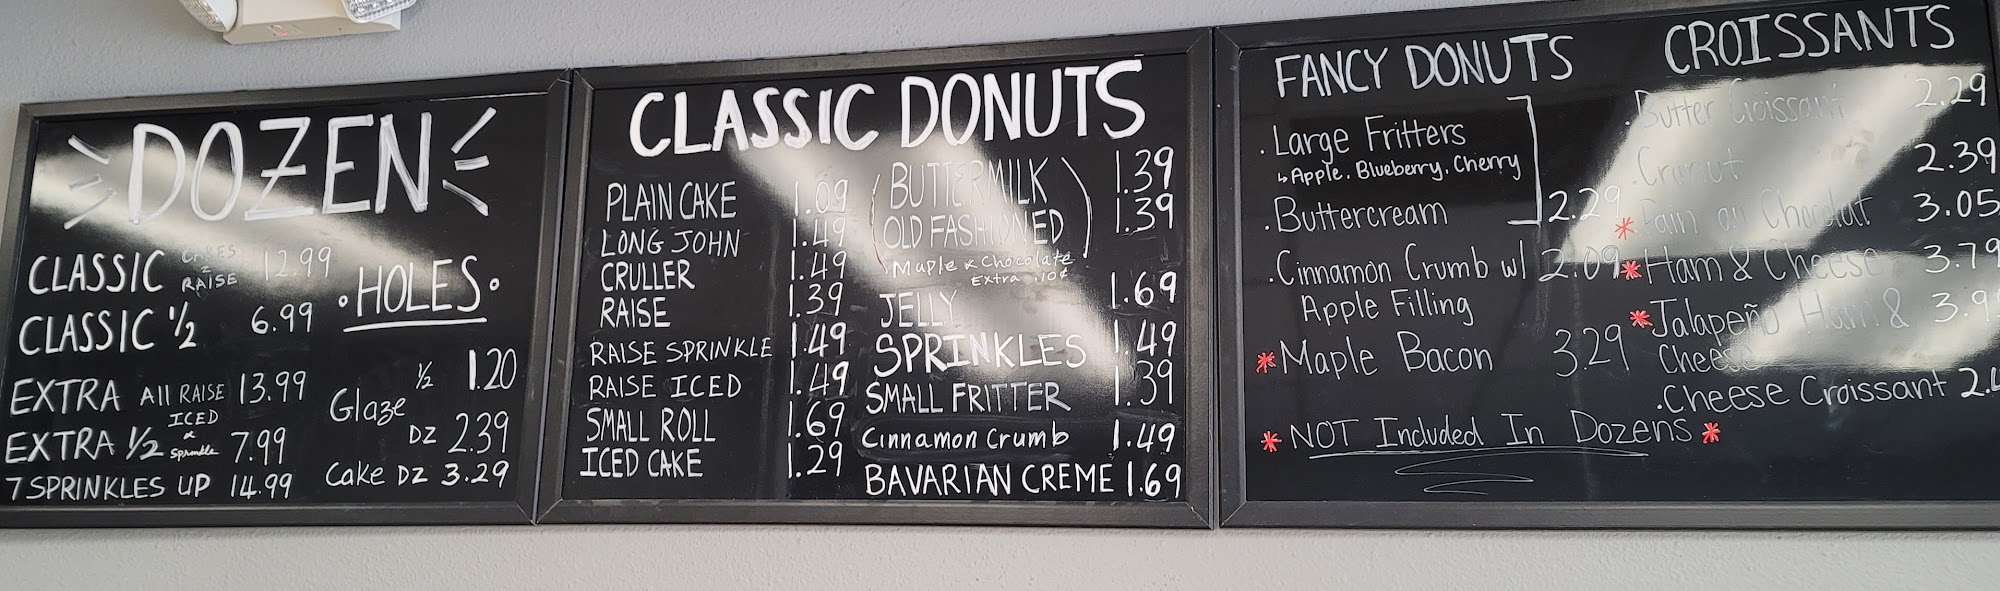 DOZEN
CLASSIC CAKES & RAISE 12.99
CLASSIC 1/2 6.99
EXTRA All RAISE 13.99
ICED &
EXTRA 1/2 Sprinkle 7.99
7 SPRINKLES UP 14.99
• HOLES •
1/2 1.20
Glaze
DZ 2.39
Cake DZ 3.29
CLASSIC DONUTS
PLAIN CAKE 1.09
LONG JOHN 1.49
CRULLER 1.49
RAISE 1.39
RAISE SPRINKLE 1.49
RAISE ICED 1.49
SMALL ROLL 1.69
ICED CAKE 1.29
BUTTERMILK 1.39
OLD FASHIONED 1.39
Maple & Chocolate
Extra .10¢
JELLY 1.69
SPRINKLES 1.49
SMALL FRITTER 1.39
Cinnamon Crumb 1.49
BAVARIAN CREME 1.69
FANCY DONUTS
. Large Fritters
↳ Apple, Blueberry, Cherry
. Buttercream 2.29
. Cinnamon Crumb w/ 2.09
Apple Filling
* Maple Bacon 3.29
* NOT Included In Dozens *
CROISSANTS
. Butter Croissant 2.29
. Cronut 2.39
* Pain au Chocolat 3.05
* Ham & Cheese 3.79
* Jalapeño Ham &
Cheese
. Cheese Croissant